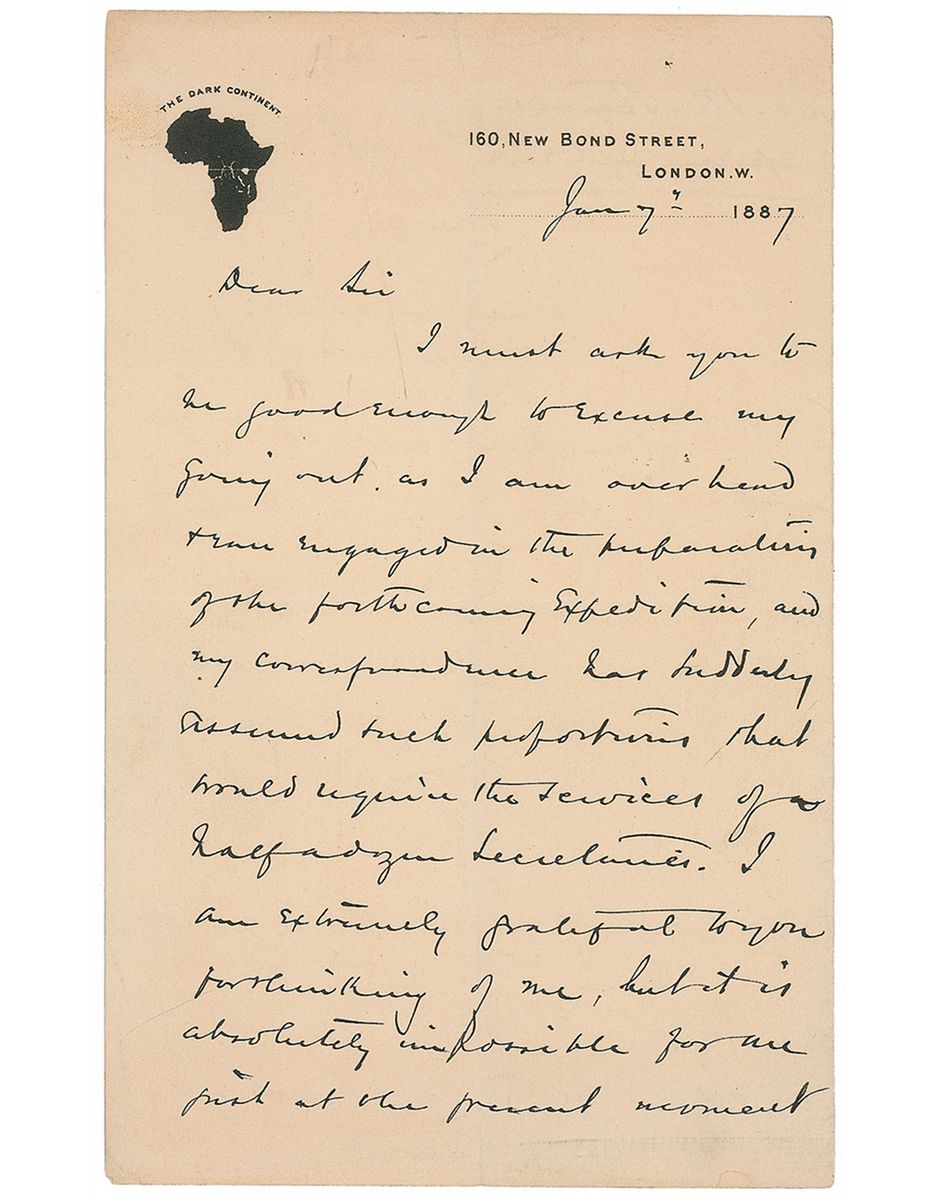 THE DARK CONTINENT
160, NEW BOND STREET,
LONDON. W.
Jan 7th 1887
Dear Sir
I must ask you to
be good enough to excuse my
going out. as I am over head
& ears engaged in the preparations
of the forthcoming Expedition, and
my correspondence has suddenly
assumed such proportions that
would require the services of a
half a dozen Secretaries. I
am extremely grateful to you
for thinking of me, but it is
absolutely impossible for me
just at the present moment